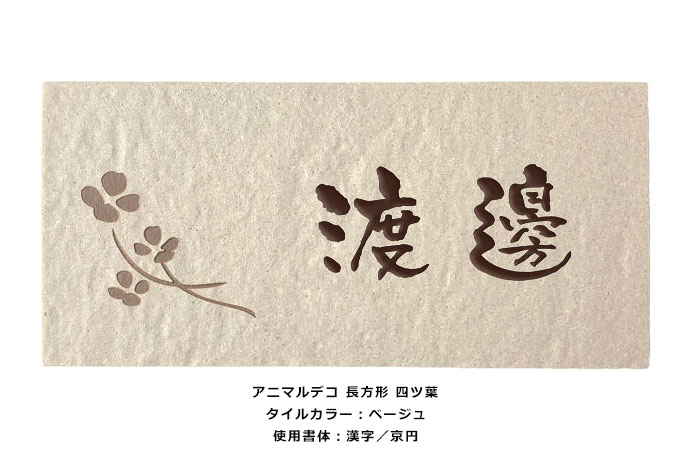 渡邊
アニマルデコ 長方形 四ツ葉
タイルカラー：ベージュ
使用書体：漢字／京円